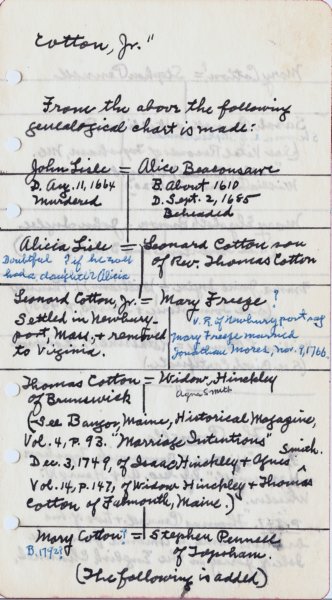 Cotton, Jr."
From the above the following
genealogical chart is made:
John Lisle = Alice Beaconsawe
D. Aug. 11, 1664 B. About 1610
Murdered D. Sept. 2, 1685
Beheaded
Alicia Lisle = Leonard Cotton son
Doubtful ? if he ever of Rev. Thomas Cotton
had a daughter Alicia
Leonard Cotton, Jr. = Mary Freeze ?
Settled in Newbury- V.R. of Newburyport say
port, Mass, & removed Mary Freeze married
to Virginia. Jonathan Morse, Nov. 9, 1766
Thomas Cotton = Widow Hinckley
of Brunswick Agnes Smith
(See Bangor, Maine, Historical Magazine,
Vol. 4, p. 93. "Marriage Intentions"
Dec. 3, 1749, of Isaac Hinckley & Agnes Smith.
Vol. 14, p. 147, of Widow Hinckley & Thomas
Cotton of Falmouth, Maine.)
Mary Cotton ? = Stephen Pennell
of Topsham.
(The following is added)